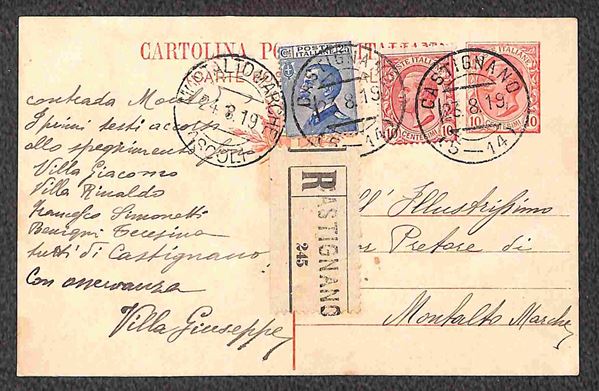 CARTOLINA PO
PARTE
POSTE ITALIANE
25
POSTE ITALIANE
10
CENTESIMI
POSTE ITALIANE
10
CENTESIMI
10
MONTALTO MARCHE
24.8.19
(ASCOLI-
CASTIGNANO
8.19
15-14
CASTIGNANO
23.8.19
15-14
R
ASTIGNANO
245
contrada
I primi testi
allo spegnimento
Villa Giacomo
Villa Rinaldo
Francesco Simonetti
Benigni Teresina
tutti di Castignano
Con osservanza
Villa Giuseppe
Ill' Illustrissimo
Pretore di
Montalto Marche